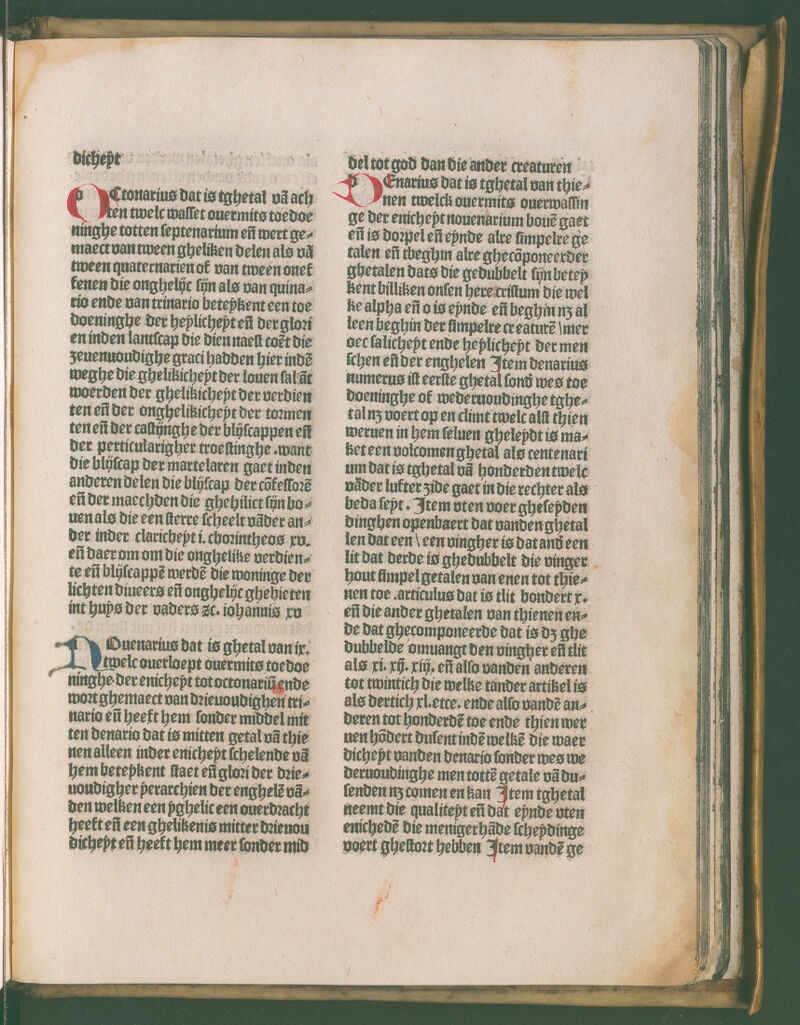 dicheyt
OCtonarius dat is tghetal vā ach
ten twelc wasset ouermits toedoe
ninghe totten septenarium eñ wert ge⸗
maect van tween gheliken delen als vā
tween quaternarien of van tween onef
fenen die onghelijc sijn als van quina⸗
rio ende van trinario beteykent een toe
doeninghe der heylicheyt eñ der glori
en inden lantscap die dien naest coēt die
zeuenuoudighe graci hadden hier indē
weghe die ghelikicheyt der louen sal āt
woerden der ghelikicheyt der verdien
ten eñ der onghelikicheyt der tormen
ten eñ der castijnghe der blijscappen eñ
der perticularigher troestinghe .want
die blijscap der martelaren gaet inden
anderen delen die blijscap der cōfessorē
eñ der maechden die ghehilict sijn bo⸗
uen als die een sterre scheelt vāder an⸗
der inder claricheyt i. chorintheos xv.
eñ daer om om die onghelike verdien⸗
te eñ blijscappē werdē die woninge der
lichten diueers eñ onghelijc ghehieten
int huys der vaders ⁊c. iohannis xv
NOuenarius dat is ghetal van ix.
twelc ouerloept ouermits toedoe
ninghe der enicheyt tot octonariū ende
wort ghemaect van drieuoudighen tri⸗
nario eñ heeft hem sonder middel mit
ten denario dat is mitten getal vā thie
nen alleen inder enicheyt schelende vā
hem beteykent staet eñ glori der drie⸗
uoudigher yerarchien der enghelē vā⸗
den welken een yghelic een ouerdracht
heeft eñ een ghelikenis mitter drieuou
dicheyt eñ heeft hem meer sonder mid
del tot god dan die ander creaturen
DEnarius dat is tghetal van thie⸗
nen twelck ouermits ouerwassin
ge der enicheyt nouenarium bouē gaet
eñ is dorpel eñ eynde alre simpelre ge
talen eñ tbeghin alre ghecōponeerder
ghetalen dats die gedubbelt sijn betey
kent billiken onsen here cristum die wel
ke alpha eñ o is eynde eñ beghin nꝫ al
leen beghin der simpelre creaturē \mer
oec salicheyt ende heylicheyt der men
schen eñ der enghelen Item denarius
numerus ist eerste ghetal sond̄ wes toe
doeninghe of wederuoudinghe tghe⸗
tal nꝫ voert op en climt twelc alst thien
weruen in hem seluen gheleydt is ma⸗
ket een volcomen ghetal als centenari
um dat is tghetal vā honderden twelc
vāder lufter zide gaet in die rechter als
beda seyt . Item vten voer gheseyden
dinghen openbaert dat vanden ghetal
len dat een \ een vingher is dat and̄ een
lit dat derde is ghedubbelt die vinger
hout simpel getalen van enen tot thie⸗
nen toe .articulus dat is tlit hondert x.
eñ die ander ghetalen van thienen en⸗
de dat ghecomponeerde dat is dꝫ ghe
dubbelde omuangt den vingher eñ tlit
als xi. xij. xiij. eñ also vanden anderen
tot twintich die welke tander artikel is
als dertich xl.etce. ende also vandē an⸗
deren tot honderdē toe ende thien wer
uen hōdert dusent indē welkē die waer
dicheyt vanden denario sonder wes we
deruoudinghe men tottē getale vā du⸗
senden nꝫ comen en kan Item tghetal
neemt die qualiteyt eñ dat eynde vten
enichedē die menigerhāde scheydinge
voert ghestort hebben Item vandē ge